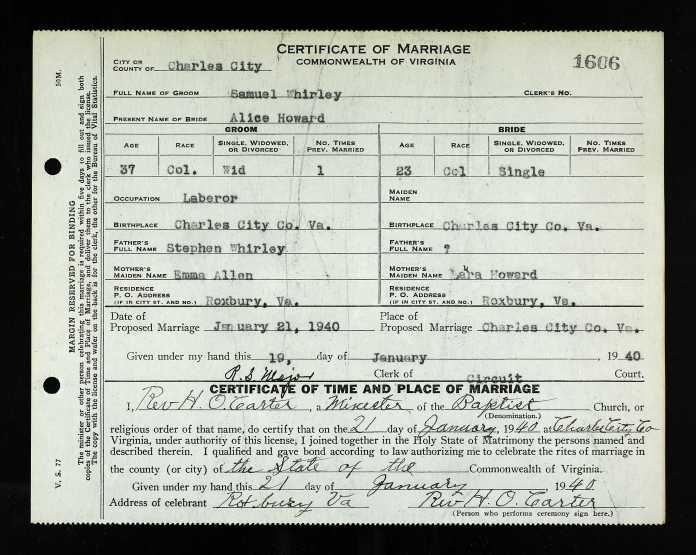 CERTIFICATE OF MARRIAGE
COMMONWEALTH OF VIRGINIA
1606
CITY OR COUNTY OF Charles City
FULL NAME OF GROOM Samuel Whirley CLERK'S NO.
PRESENT NAME OF BRIDE Alice Howard
GROOM BRIDE
AGE RACE SINGLE, WIDOWED, OR DIVORCED NO. TIMES PREV. MARRIED AGE RACE SINGLE, WIDOWED, OR DIVORCED NO. TIMES PREV. MARRIED
37 Col. Wid 1 23 Col Single
OCCUPATION Laberor MAIDEN NAME
BIRTHPLACE Charles City Co. Va. BIRTHPLACE Charles City Co. Va.
FATHER'S FULL NAME Stephen Whirley FATHER'S FULL NAME ?
MOTHER'S MAIDEN NAME Emma Allen MOTHER'S MAIDEN NAME Howard
RESIDENCE P. O. ADDRESS (IF IN CITY ST. AND NO.) Roxbury, Va. RESIDENCE P. O. ADDRESS (IF IN CITY ST. AND NO.) Roxbury, Va.
Date of Proposed Marriage January 21, 1940 Place of Proposed Marriage Charles City Co. Va.
Given under my hand this 19, day of January , 1940
R. S. Major Clerk of Circuit Court.
CERTIFICATE OF TIME AND PLACE OF MARRIAGE
I, Rev H. O. Carter , a Minester of the Baptist Church, or
(Denomination.)
religious order of that name, do certify that on the 21 day of January, 1940 at Charles City, Co
Virginia, under authority of this license, I joined together in the Holy State of Matrimony the persons named and
described therein. I qualified and gave bond according to law authorizing me to celebrate the rites of marriage in
the county (or city) of the State of the Commonwealth of Virginia.
Given under my hand this 21 day of January 1940
Address of celebrant Roxbury Va Rev H. O. Carter
(Person who performs ceremony sign here.)
V. S. 77 50M.
MARGIN RESERVED FOR BINDING
The minister or other person celebrating this marriage is required within five days to fill out and sign both
copies of the Certificate of Time and Place of Marriage, and deliver them to the clerk who issued the license.
The copy with the license and water on the back is for the clerk, the other for the Bureau of Vital Statistics.